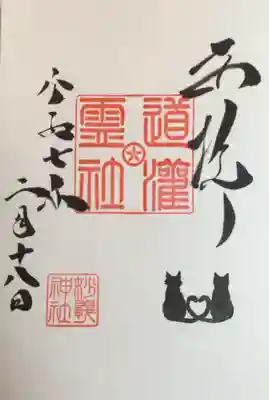 奉拝
道灌
霊社
令和七年
二月十八日
妙義
神社